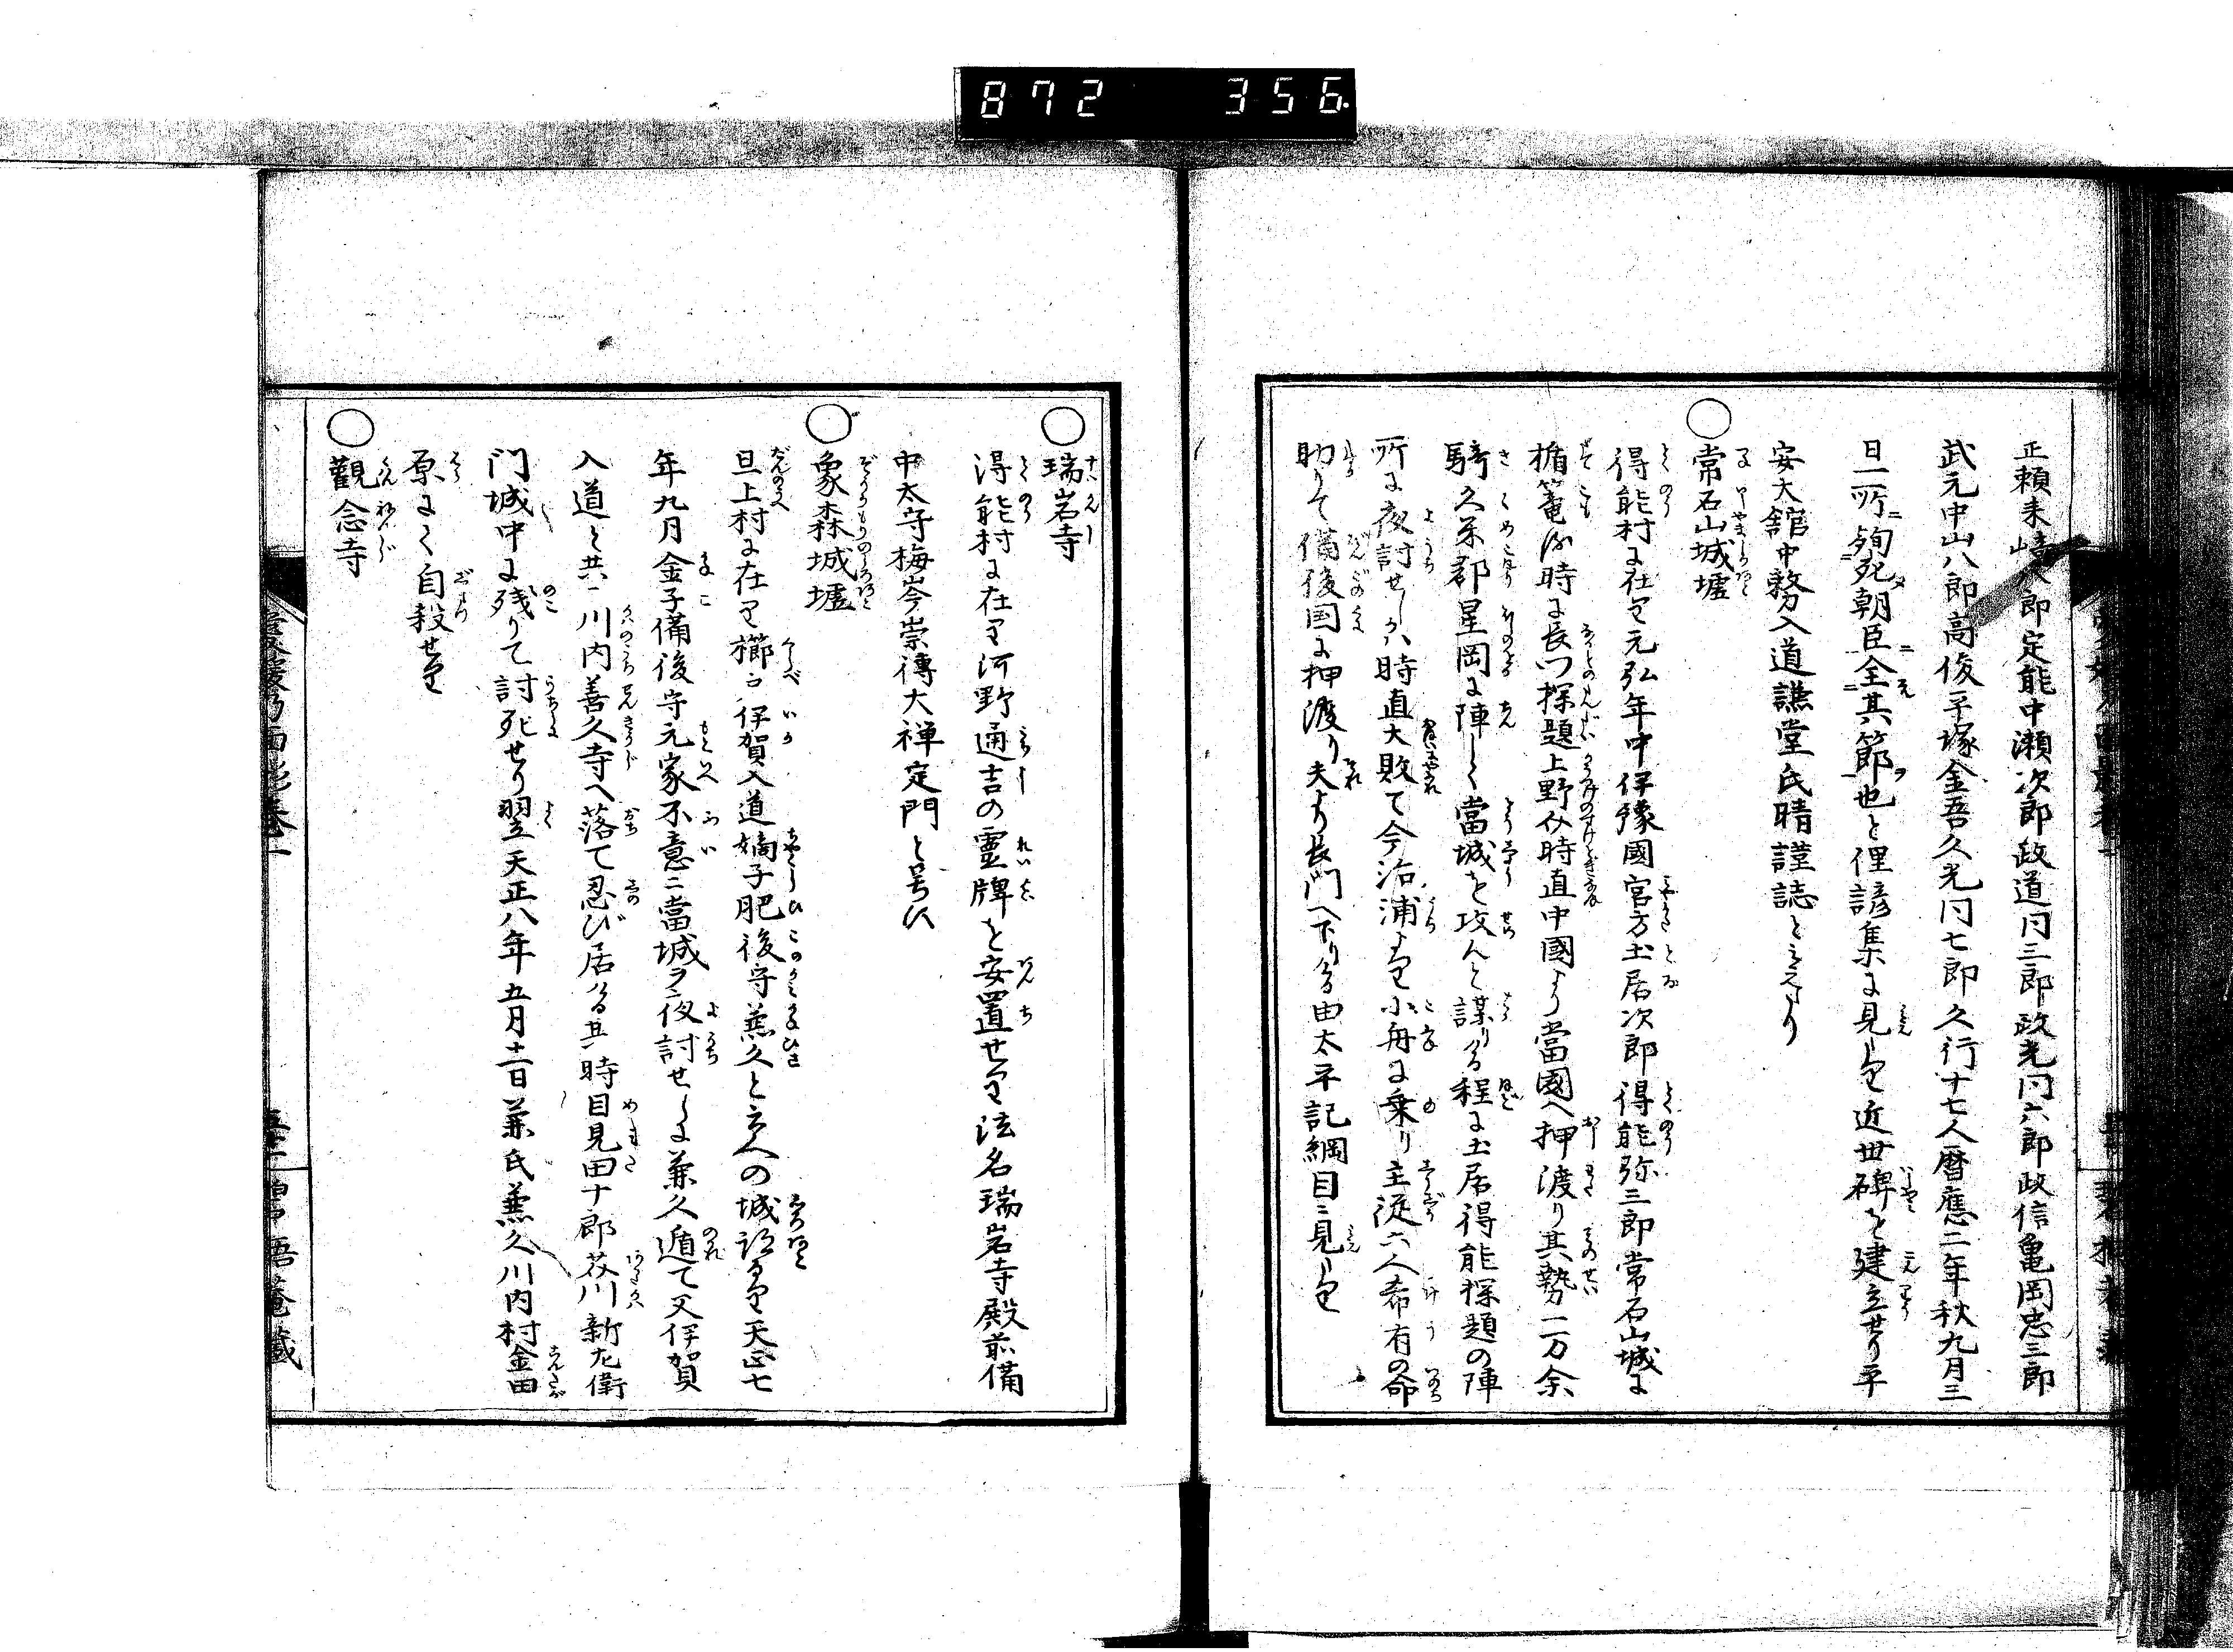 872 356
正頼来﨑八郎定能中瀬次郎政道同三郎政光同六郎政信亀岡忠三郎
武元中山八郎高俊平塚金吾久光同七郎久行十七人暦應二年秋九月三
日一所ニ殉死ス朝臣全其節也と俚諺集に見えたり近世碑を建立せり平
安大舘中務入道譙堂氏晴謹誌といへり
○常石山城墟
得能村に在り元弘年中伊豫國宮方土居次郎得能弥三郎常石山城に
楯篭る時に長門探題上野介時直中國より當國へ押渡り其勢二万余
騎久米郡星岡に陣して當城を攻んと謀りける程に土居得能探題の陣
所に夜討せしかハ時直大敗て今治浦より小舟に乗り主従六人希有の命
助りて備後国に押渡り夫より長門へ下りける由太平記綱目に見えたり
○瑞岩寺
得能村に在り河野通吉の霊牌を安置せり法名瑞岩寺殿前備
中太守梅岑崇傳大禅定門と号す
○象森城墟
旦上村に在り櫛戸伊賀入道嫡子肥後守兼久と云人の城跡なり天正七
年九月金子備後守元家不意ニ當城ヲ夜討せしに兼久遁て父伊賀
入道と共ニ川内善久寺へ落て忍び居ける其時目見田十郎荻川新左衛
門城中に残りて討死せり翌天正八年五月十二日兼氏兼久川内村金田
原にて自殺せり
○觀念寺
愛媛乃面影巻一
碧梧菴藏